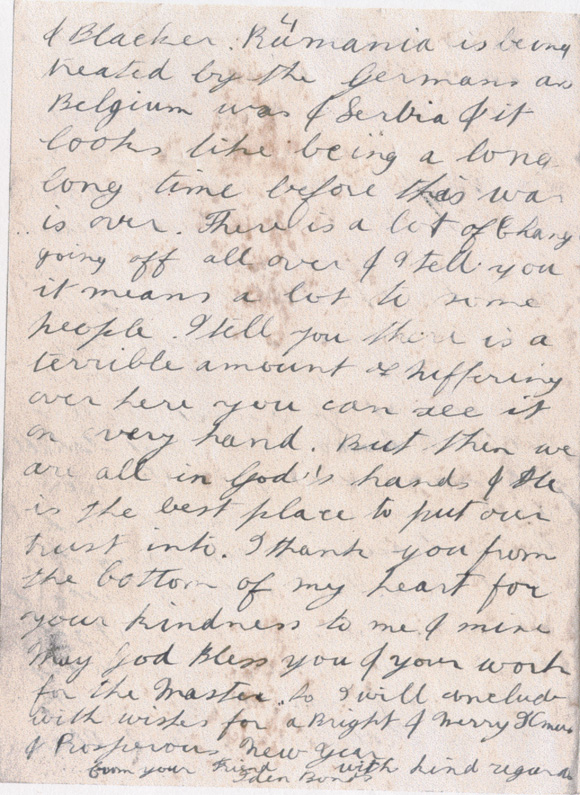 4
& Blacker. Rumania is being
treated by the Germans as
Belgium was & Serbia & it
looks like being a long
long time before this war
is over. There is a lot of Change
going off all over & I tell you
it means a lot to some
people. I tell you there is a
terrible amount of Suffering
over here you can see it
on every hand. But then we
are all in God's hands & He
is the best place to put our
trust into. I thank you from
the bottom of my heart for
your kindness to me & mine
May God Bless you & your work
for the Master. So I will conclude
with wishes for a Bright & Merry Xmas
& Prosperous New Year
from your Friend with kind regards